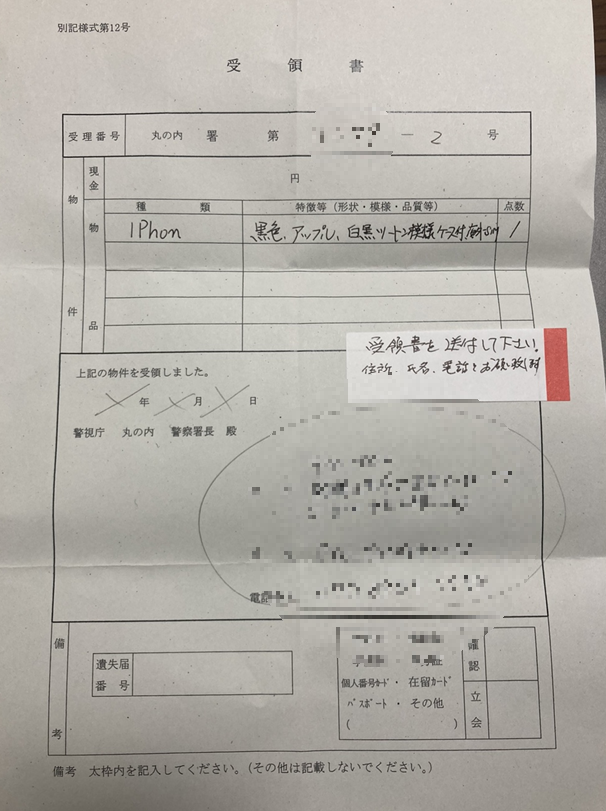 別記様式第12号
受領書
受理番号 丸の内 署 第 ー 2 号
物件
現金 円
物品
種類 特徴等(形状・模様・品質等) 点数
iPhon 黒色、アップル、白黒ツートン模様ケース付 1
受領書を送付して下さい。
住所、氏名、電話を
上記の物件を受領しました。
年 月 日
警視庁 丸の内 警察署長 殿
備考
遺失届
番号
個人番号ｶｰﾄﾞ・在留ｶｰﾄﾞ
パスポート・その他
( )
確認
立会
備考 太枠内を記入してください。(その他は記載しないでください。)